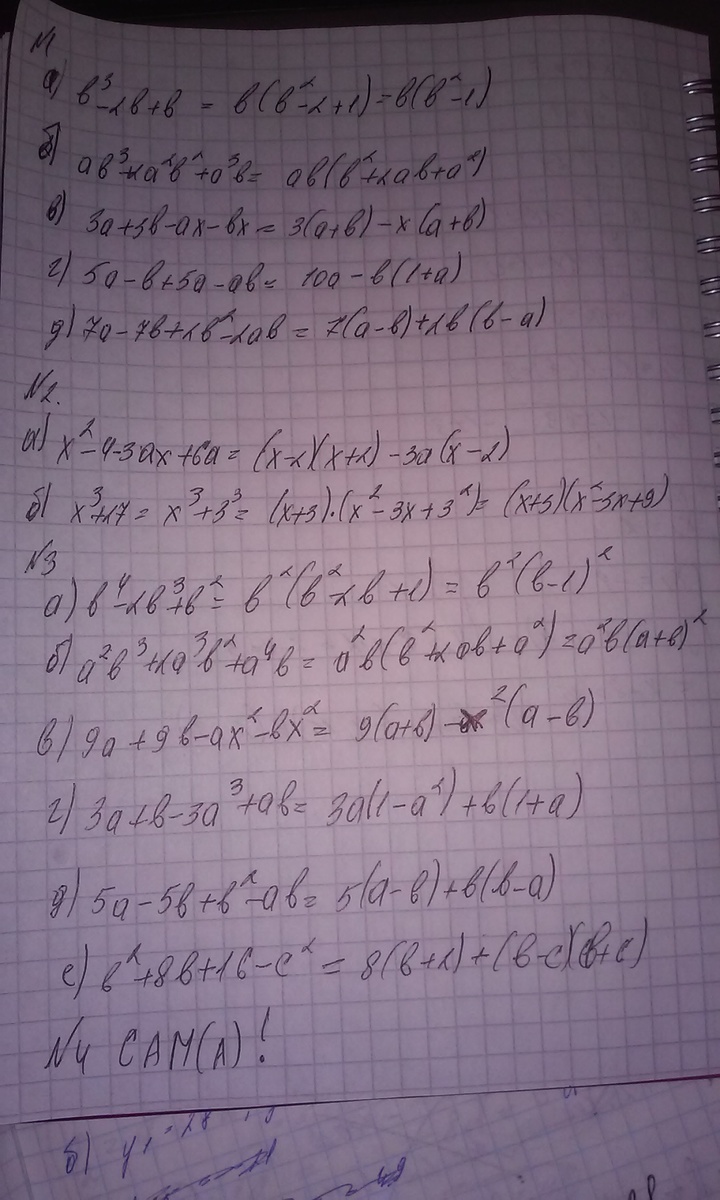 №1
а) в³-2в+в = в(в²-2+1)=в(в²-1)
б) ав³+2а²в²+а³в= ав(в²+2ав+а²)
в) 3а+3в-ах-вх = 3(а+в)-х(а+в)
г) 5а-в+5а-ав= 10а-в(1+а)
д) 7а-7в+2в²-2ав = 7(а-в)+2в(в-а)
№2.
а) х²-4-3ах+6а= (х-2)(х+2)-3а(х-2)
б) х³+27= х³+3³= (х+3)·(х²-3х+3²)= (х+3)(х²-3х+9)
№3
а) в⁴-2в³+в²= в²(в²-2в+1) = в²(в-1)²
б) а²в³+2а³в²+а⁴в= а²в(в²+2ав+а²)=а²в(а+в)²
в) 9а+9в-ах²-вх²= 9(а+в)-х²(а-в)
г) 3а+в-3а³+ав= 3а(1-а²)+в(1+а)
д) 5а-5в+в²-ав= 5(а-в)+в(в-а)
е) в²+8в+16-с² = 8(в+2)+(в-с)(в+с)
№4 САМ(А)!
б)